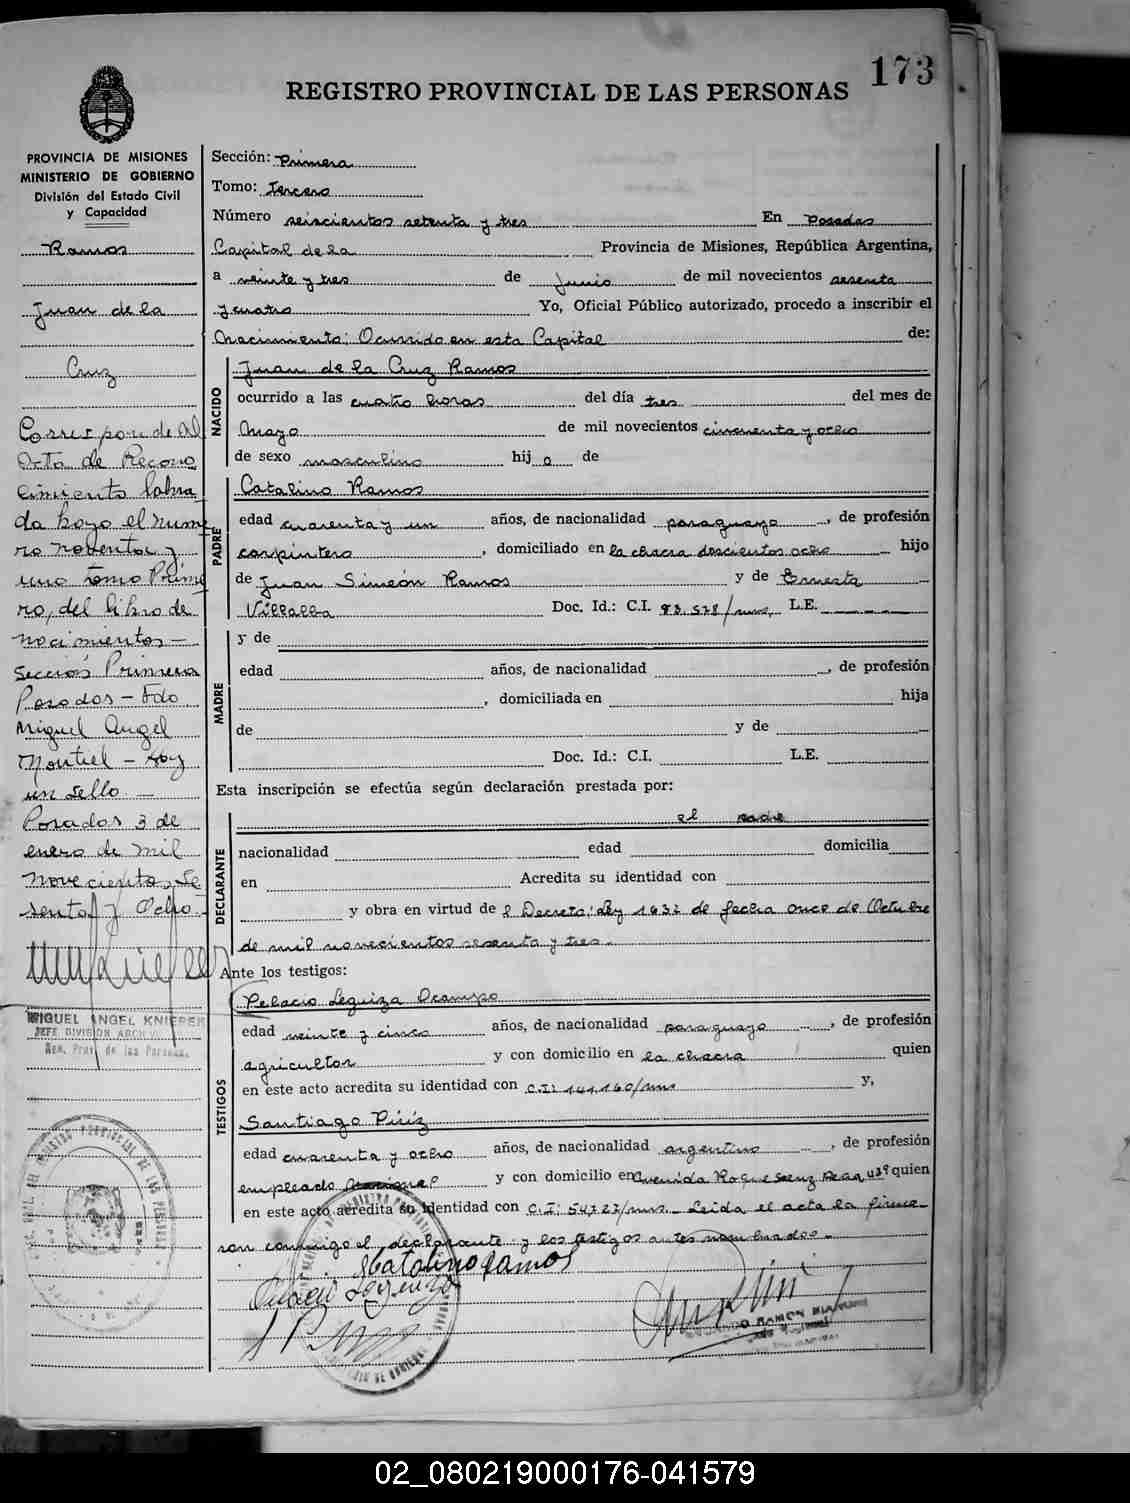 173
REGISTRO PROVINCIAL DE LAS PERSONAS
PROVINCIA DE MISIONES
MINISTERIO DE GOBIERNO
División del Estado Civil
y Capacidad
Ramos
Juan de la
Cruz
Corresponde al
Acta de Recono
cimiento labra
da bajo el núme
ro noventa y
uno tomo Prime
ro, del libro de
nacimientos –
Sección Primera
Posadas – Fdo
Miguel Angel
Montiel – Hay
un sello. –
Posadas 3 de
enero de mil
novecientos se
senta y Ocho.-
MIGUEL ANGEL KNIEREN
JEFE DIVISION ARCHIVO
Reg. Prov. de las Personas.
Sección: Primera
Tomo: Tercero
Número seiscientos setenta y tres En Posadas
Capital de la Provincia de Misiones, República Argentina,
a veinte y tres de Junio de mil novecientos sesenta
y cuatro Yo, Oficial Público autorizado, procedo a inscribir el
Nacimiento: Ocurrido en esta Capital de:
NACIDO
Juan de la Cruz Ramos
ocurrido a las cuatro horas del día tres del mes de
Mayo de mil novecientos cincuenta y ocho
de sexo masculino hijo de
PADRE
Catalino Ramos
edad cuarenta y un años, de nacionalidad paraguayo, de profesión
carpintero, domiciliado en la chacra doscientos ocho hijo
de Juan Simeón Ramos y de Ernesta
Villalba Doc. Id.: C.I. 83.578/mns. L.E.
MADRE
y de
edad años, de nacionalidad , de profesión
, domiciliada en hija
de y de
Doc. Id.: C.I. L.E.
Esta inscripción se efectúa según declaración prestada por:
DECLARANTE
el padre
nacionalidad edad domicilia
en Acredita su identidad con
y obra en virtud de l Decreto: Ley 1632 de fecha once de Octubre
de mil novecientos sesenta y tres.
Ante los testigos:
TESTIGOS
Pelacio Leguiza Ocampo
edad veinte y cinco años, de nacionalidad paraguayo, de profesión
agricultor y con domicilio en la chacra quien
en este acto acredita su identidad con C.I: 141.160/mns y,
Santiago Píriz
edad cuarenta y ocho años, de nacionalidad argentino, de profesión
empleado Nacional y con domicilio en Avenida Roque Saenz Peña quien
en este acto acredita su identidad con C.I: 54727/mns. – Leida el acta la firma-
ron conmigo el declarante y los testigos antes nombrados.-
Catalino Ramos
02_080219000176-041579